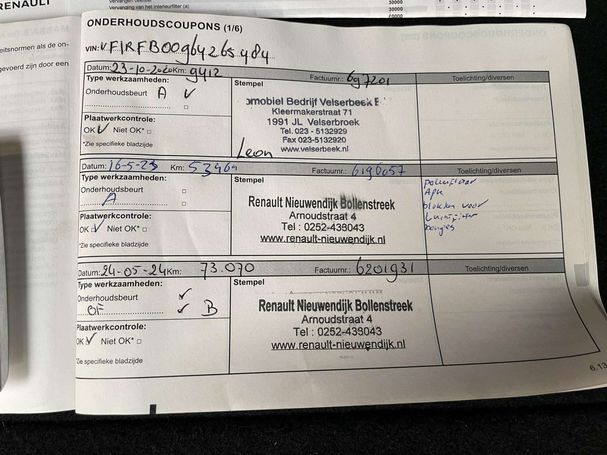 RENAULT
Vervanging van het interieurfilter (a)
30000
ONDERHOUDSCOUPONS (1/6)
VIN: VF1RFB00964265484
Datum: 23-10-2020 Km: 9412 Factuurnr.: 697201 Toelichting/diversen
Type werkzaamheden:
Onderhoudsbeurt A ✓
Plaatwerkcontrole:
OK ✓ Niet OK* □
*Zie specifieke bladzijde
Stempel
omobiel Bedrijf Velserbeek B
Kleermakerstraat 71
1991 JL Velserbroek
Tel. 023 - 5132929
Fax 023-5132920
www.velserbeek.nl
Leon
Datum: 16-5-23 Km: 53469 Factuurnr.: 6196057 Toelichting/diversen
Type werkzaamheden:
Onderhoudsbeurt □
A □
Plaatwerkcontrole:
OK ✓ Niet OK* □
*Zie specifieke bladzijde
Stempel
Renault Nieuwendijk Bollenstreek
Arnoudstraat 4
Tel : 0252-438043
www.renault-nieuwendijk.nl
pollenfilter
Apk
blokken voor
Luchtfilter
bougies
Datum: 24-05-24 Km: 73.070 Factuurnr.: 6201931 Toelichting/diversen
Type werkzaamheden:
Onderhoudsbeurt ✓
OF ✓ B
Plaatwerkcontrole:
OK ✓ Niet OK* □
*Zie specifieke bladzijde
Stempel
Renault Nieuwendijk Bollenstreek
Arnoudstraat 4
Tel : 0252-438043
www.renault-nieuwendijk.nl
6.13
eitsnormen als de on-
gevoerd zijn door een